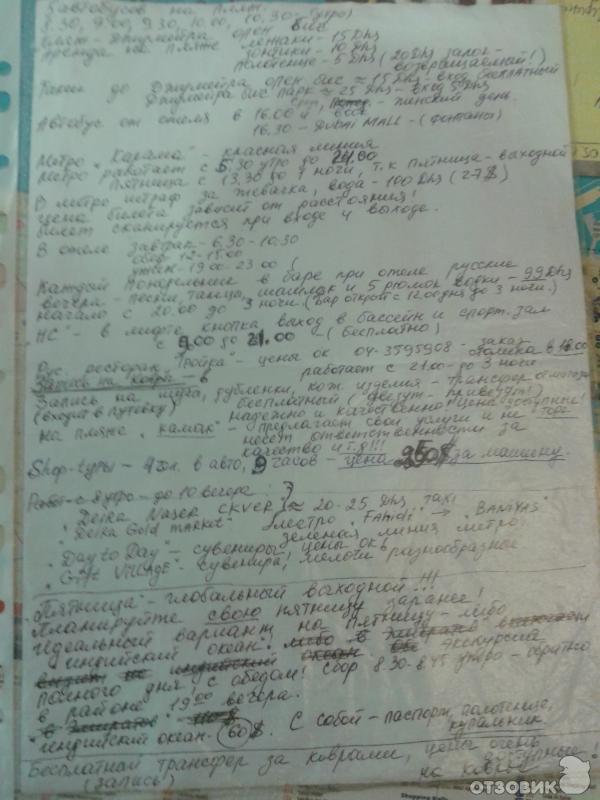 5 автобусов на пляж.
8.30, 9.00, 9.30, 10.00, 10.30 - (утро)
Пляж - Джумейра опен бич
Аренда на пляже лежаки - 15 Dhs
зонтики - 10 Dhs
полотенце - 5 Dhs (20 Dhs залог - возвращаемый!)
Такси до Джумейра опен бич ≈ 15 Dhs - вход бесплатный
Джумейра бич парк ≈ 25 Dhs - вход 5 Dhs
- женский день.
Автобус от отеля в 16.00 и
16.30 - Dubai MALL - (фонтаны)
Метро "Карама" - красная линия
Метро работает с 5.30 утро до 24.00
Пятница с 13.30 до 1 ночи, т.к пятница - выходной
В метро штраф за жевачка, вода - 100 Dhs (27$)
цена билета зависит от расстояния!
билет сканируется при входе и выходе.
В отеле завтрак - 6.30 - 10.30
обед 12 - 15.00
ужин - 19.00 - 23.00
Каждый понедельник в баре при отеле русские
вечера - песни, танцы, шашлык и 5 рюмок водки - 99 Dhs
начало с 20.00 до 3 ночи. (бар открыт с 12.00 дня до 3 ночи.)
"HC" - в лифте кнопка выход в бассейн и спорт. зал
с 9.00 до 21.00 - (бесплатно)
Рус. ресторан "Тройка" - цены ок 04-3595908 - заказ столика в 18.00
работает с 21.00 до 3 ночи
Запись на шуба, дубленки, кож. изделия - трансфер
(входит в путевку) бесплатный ("Везут - привезут!)
надежно и качественно! цены доступные!
На пляже "камак" - предлагает свои услуги и не
несет ответственность за
качество и т.д!!!
Shop-туры - 4 чел. в авто, 9 часов - цена 250$ за машину.
Работ - с 8 утро - до 10 вечера
"Deira Naser СКVER" ≈ 20-25 Dhs. taxi
"Deira Gold market" метро "Fahidi" → "BANIYAS"
зеленая линия метро
"Day to Day" - сувениры цены ок!
"Gift VILLAGE" - сувениры, мелочи разнообразные
"Пятница" - глобальный выходной !!!
Планируйте свою пятницу заранее!
Идеальный вариант на Пятницу - либо
индийский океан. либо в Эмиратов
индийский океан. Экскурсия
полного дня, с обедом! Сбор 8.30-8.45 утро - обратно
в районе 19.00 вечера.
в Эмиратов
"индийский океан" 60$. С собой - паспорт, полотенце,
купальник
Бесплатный трансфер за коврами, цены очень
доступные!
(запись) на ковры
ОТЗОВИК